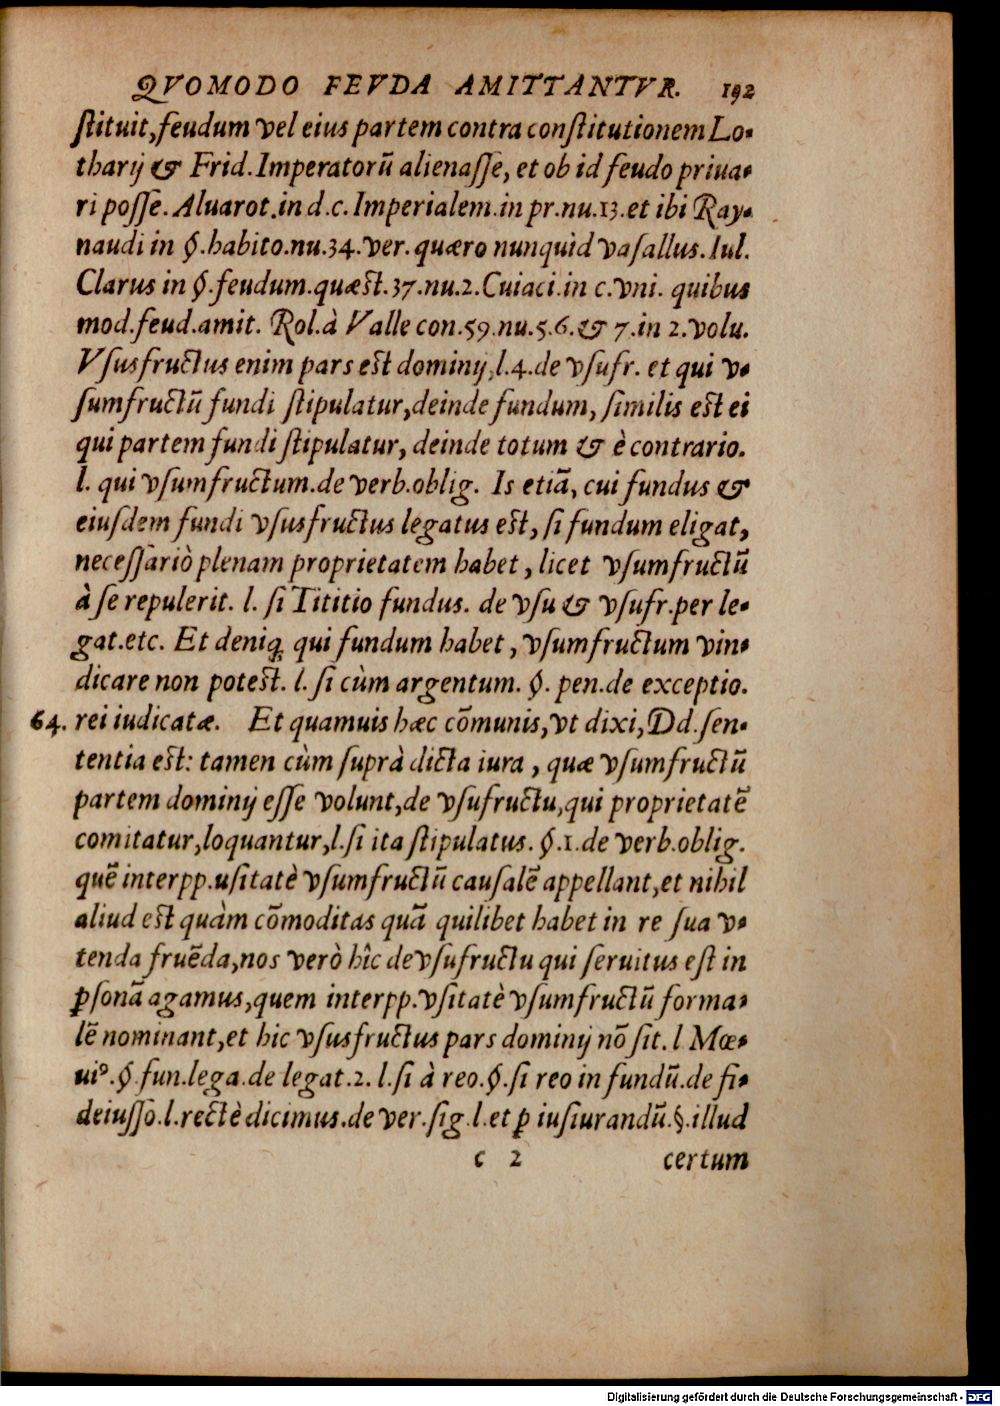 QVOMODO FEVDA AMITTANTVR. 192
ſtituit, feudum vel eius partem contra conſtitutionem Lo-
tharij & Frid. Imperatorū alienaſſe, et ob id feudo priua-
ri poſſe. Aluarot. in d.c. Imperialem. in pr. nu. 13. et ibi Ray-
naudi in §. habito. nu. 34. ver. quæro nunquid vaſallus. Iul.
Clarus in §. feudum. quæst. 37. nu. 2. Cuiaci. in c. vni. quibus
mod. feud. amit. Rol. à Valle con. 59. nu. 5. 6. & 7. in 2. volu.
Vſusfructus enim pars est dominij, l. 4. de vſufr. et qui v-
ſumfructū fundi ſtipulatur, deinde fundum, ſimilis est ei
qui partem fundi ſtipulatur, deinde totum & è contrario.
l. qui vſumfructum. de verb. oblig. Is etiā, cui fundus &
eiuſdem fundi vſusfructus legatus est, ſi fundum eligat,
neceſſariò plenam proprietatem habet, licet vſumfructū
à ſe repulerit. l. ſi Tititio fundus. de vſu & vſufr. per le-
gat. etc. Et deniq; qui fundum habet, vſumfructum vin-
dicare non potest. l. ſi cùm argentum. §. pen. de exceptio.
64. rei iudicatæ. Et quamuis hæc cōmunis, vt dixi, Dd. ſen-
tentia est: tamen cùm ſuprà dicta iura, quæ vſumfructū
partem dominij eſſe volunt, de vſufructu, qui proprietatē
comitatur, loquantur, l. ſi ita ſtipulatus. §. 1. de verb. oblig.
quē interpp. uſitatè vſumfructū cauſalē appellant, et nihil
aliud est quàm cōmoditas quā quilibet habet in re ſua v-
tenda fruēda, nos verò hîc de vſufructu qui ſeruitus eſt in
ꝑſonā agamus, quem interpp. vſitatè vſumfructū forma-
lē nominant, et hic vſusfructus pars dominij nō ſit. l Mœ-
ui⁹. §. fun. lega. de legat. 2. l. ſi à reo. §. ſi reo in fundū. de fi-
deiuſſo. l. rectè dicimus. de ver. ſig. l. et ꝑ iuſiurandū. §. illud
c 2 certum
Digitalisierung gefördert durch die Deutsche Forschungsgemeinschaft - DFG